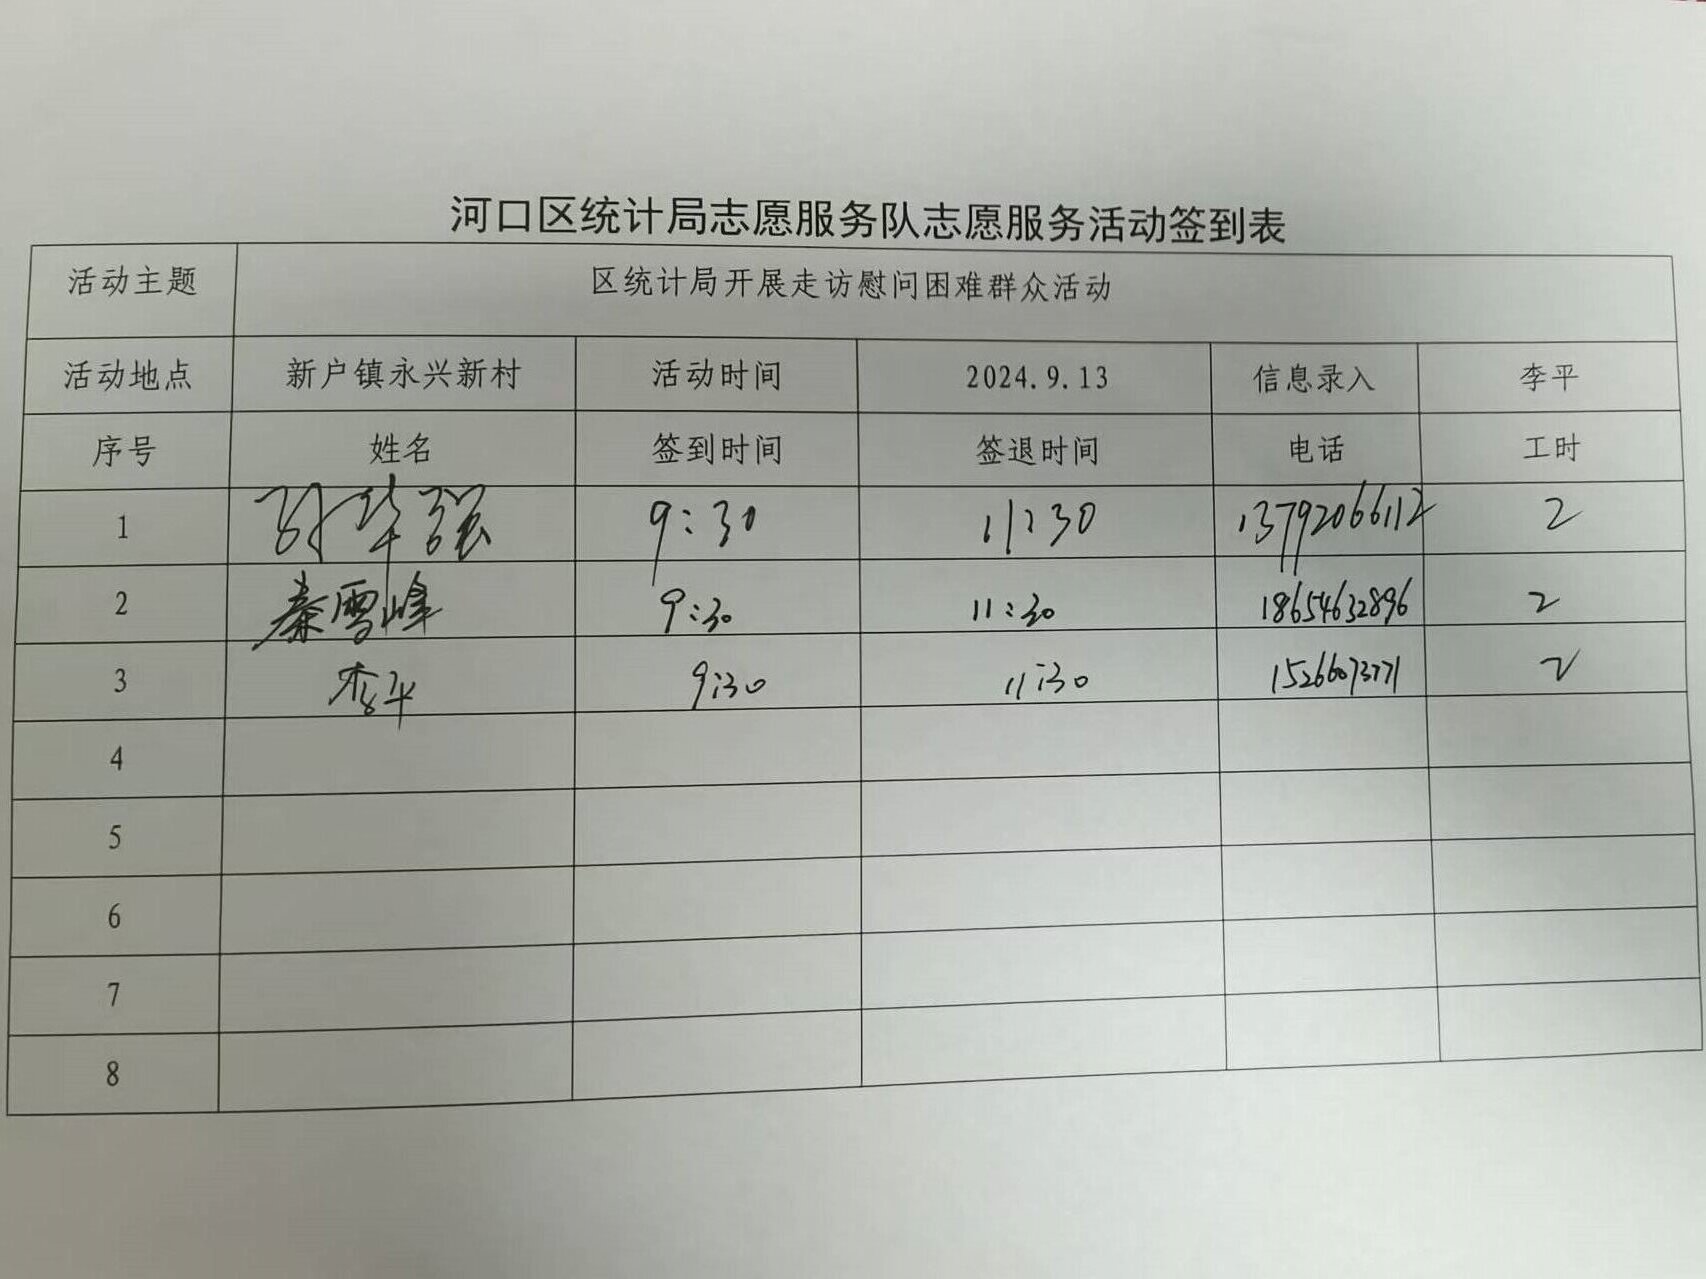 河口区统计局志愿服务队志愿服务活动签到表
活动主题 区统计局开展走访慰问困难群众活动
活动地点 新户镇永兴新村 活动时间 2024.9.13 信息录入 李平
序号 姓名 签到时间 签退时间 电话 工时
1 华强 9:30 11:30 13792066112 2
2 秦雪峰 9:30 11:30 18654632896 2
3 李平 9:30 11:30 15266073771 2
4
5
6
7
8